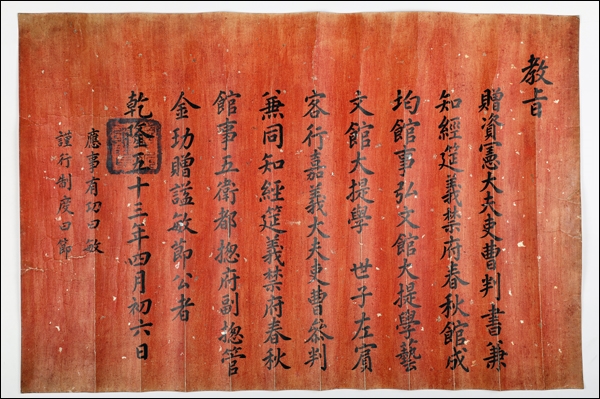 教旨
贈資憲大夫吏曹判書兼
知經筵義禁府春秋館成
均館事弘文館大提學藝
文館大提學 世子左賓
客行嘉義大夫吏曹叅判
兼同知經筵義禁府春秋
館事五衛都摠府副摠管
金玏贈謚敏節公者
乾隆五十三年四月初六日
應事有功曰敏
謹行制度曰節